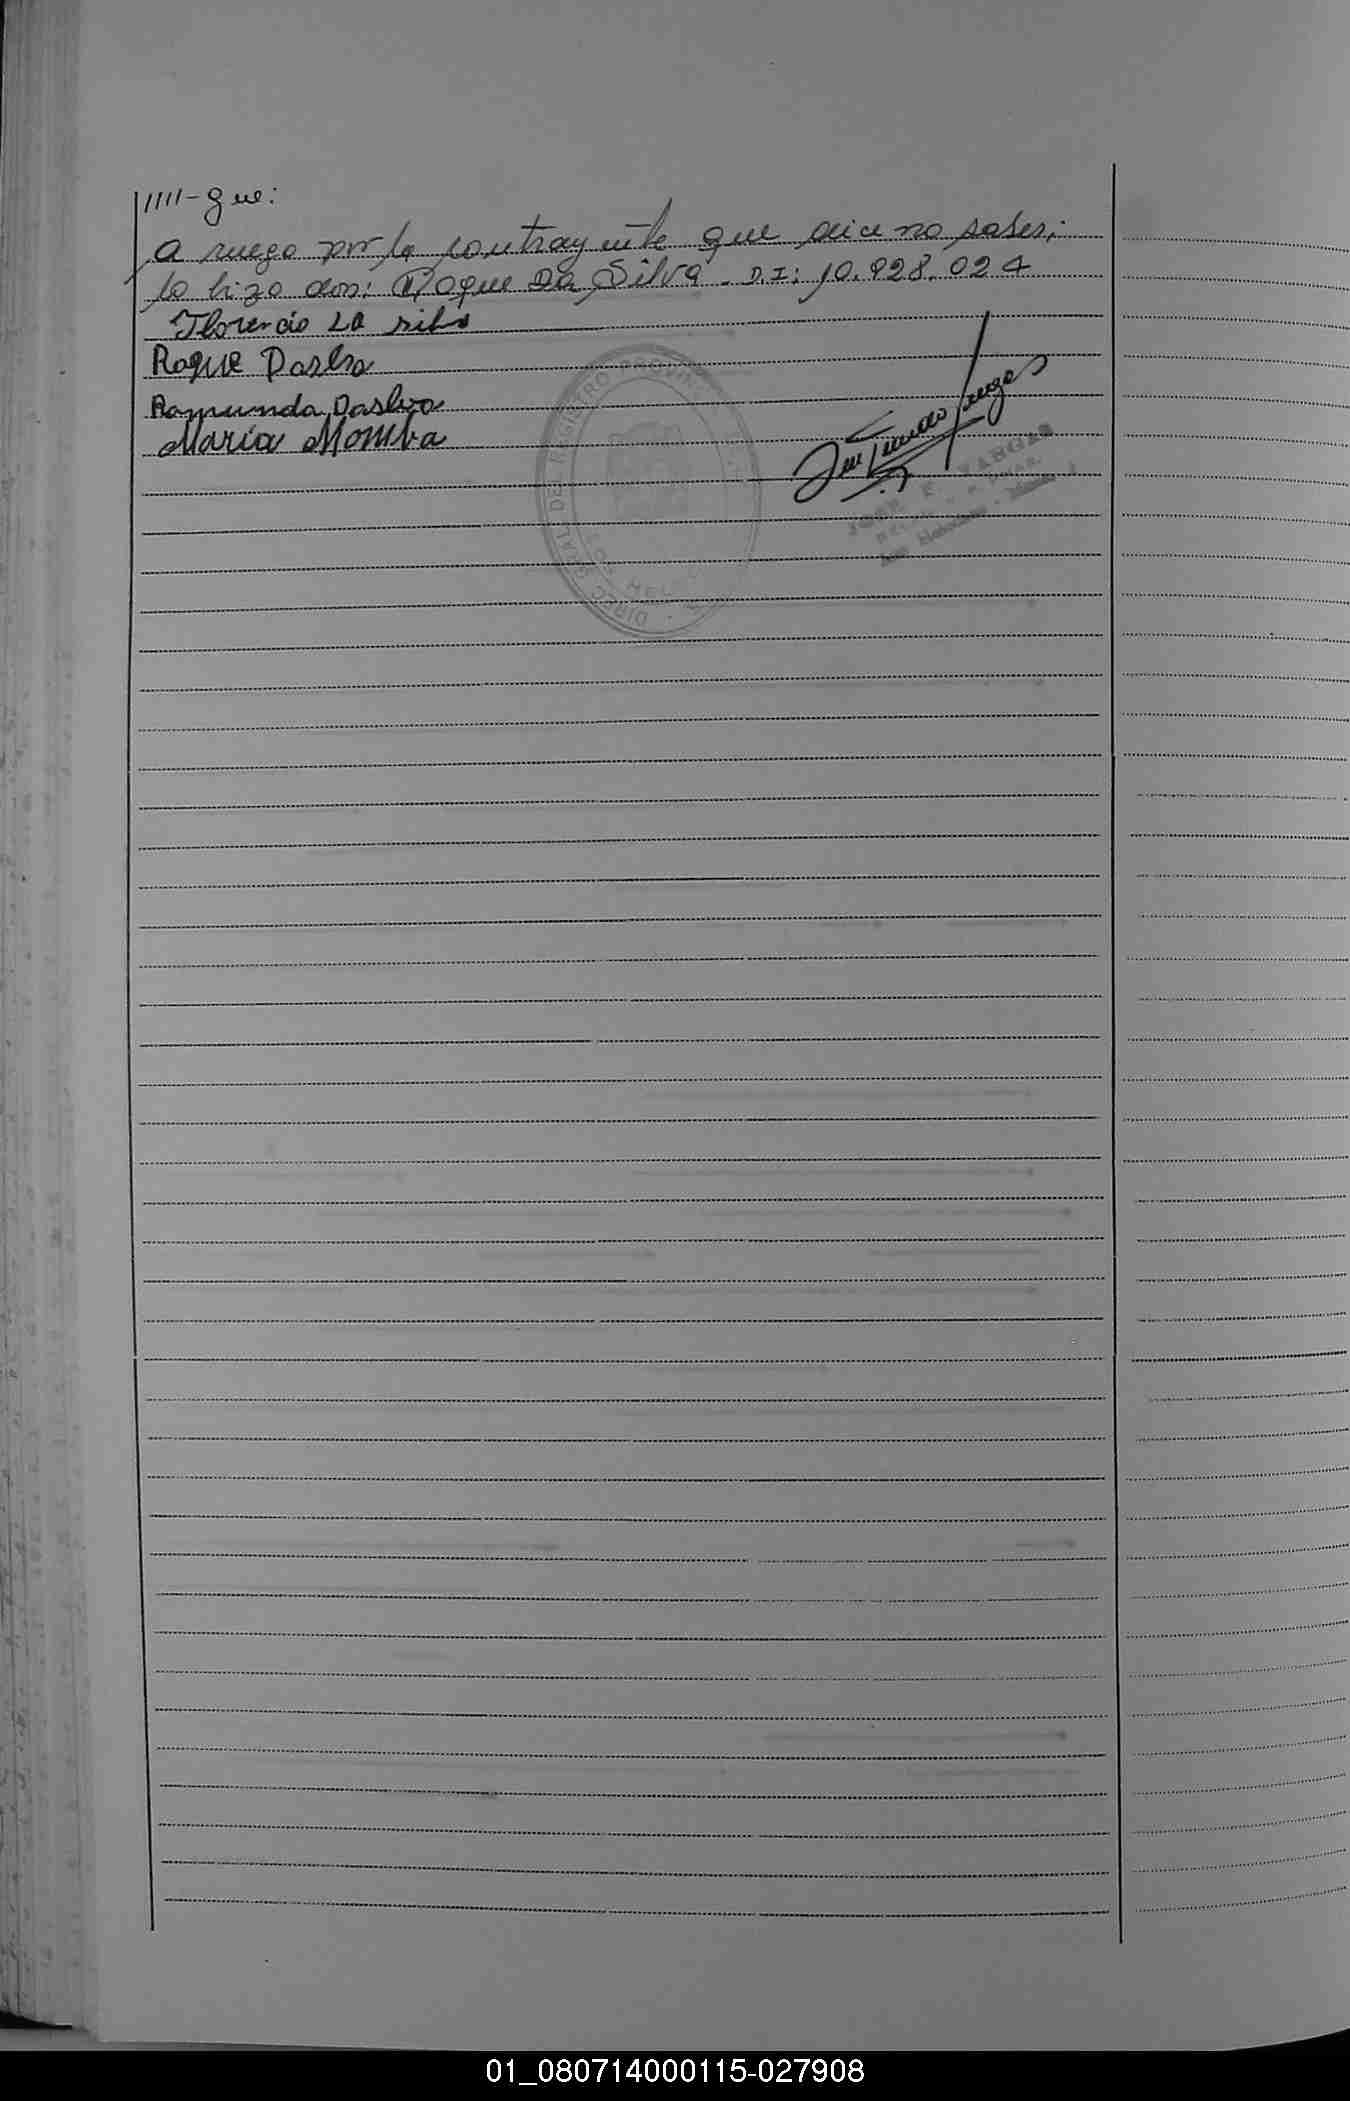 11111-que:
a ruego por la contrayente que dice no saber;
lo hizo don: Roque Da Silva. D.I: 10.928.024
Florencio La silva
Roque Daslva
Ramunda Daslva
María Momba
DIREC GRAL DEL REGISTRO PROVIN
VARGAS
JOSE E.
01_080714000115-027908